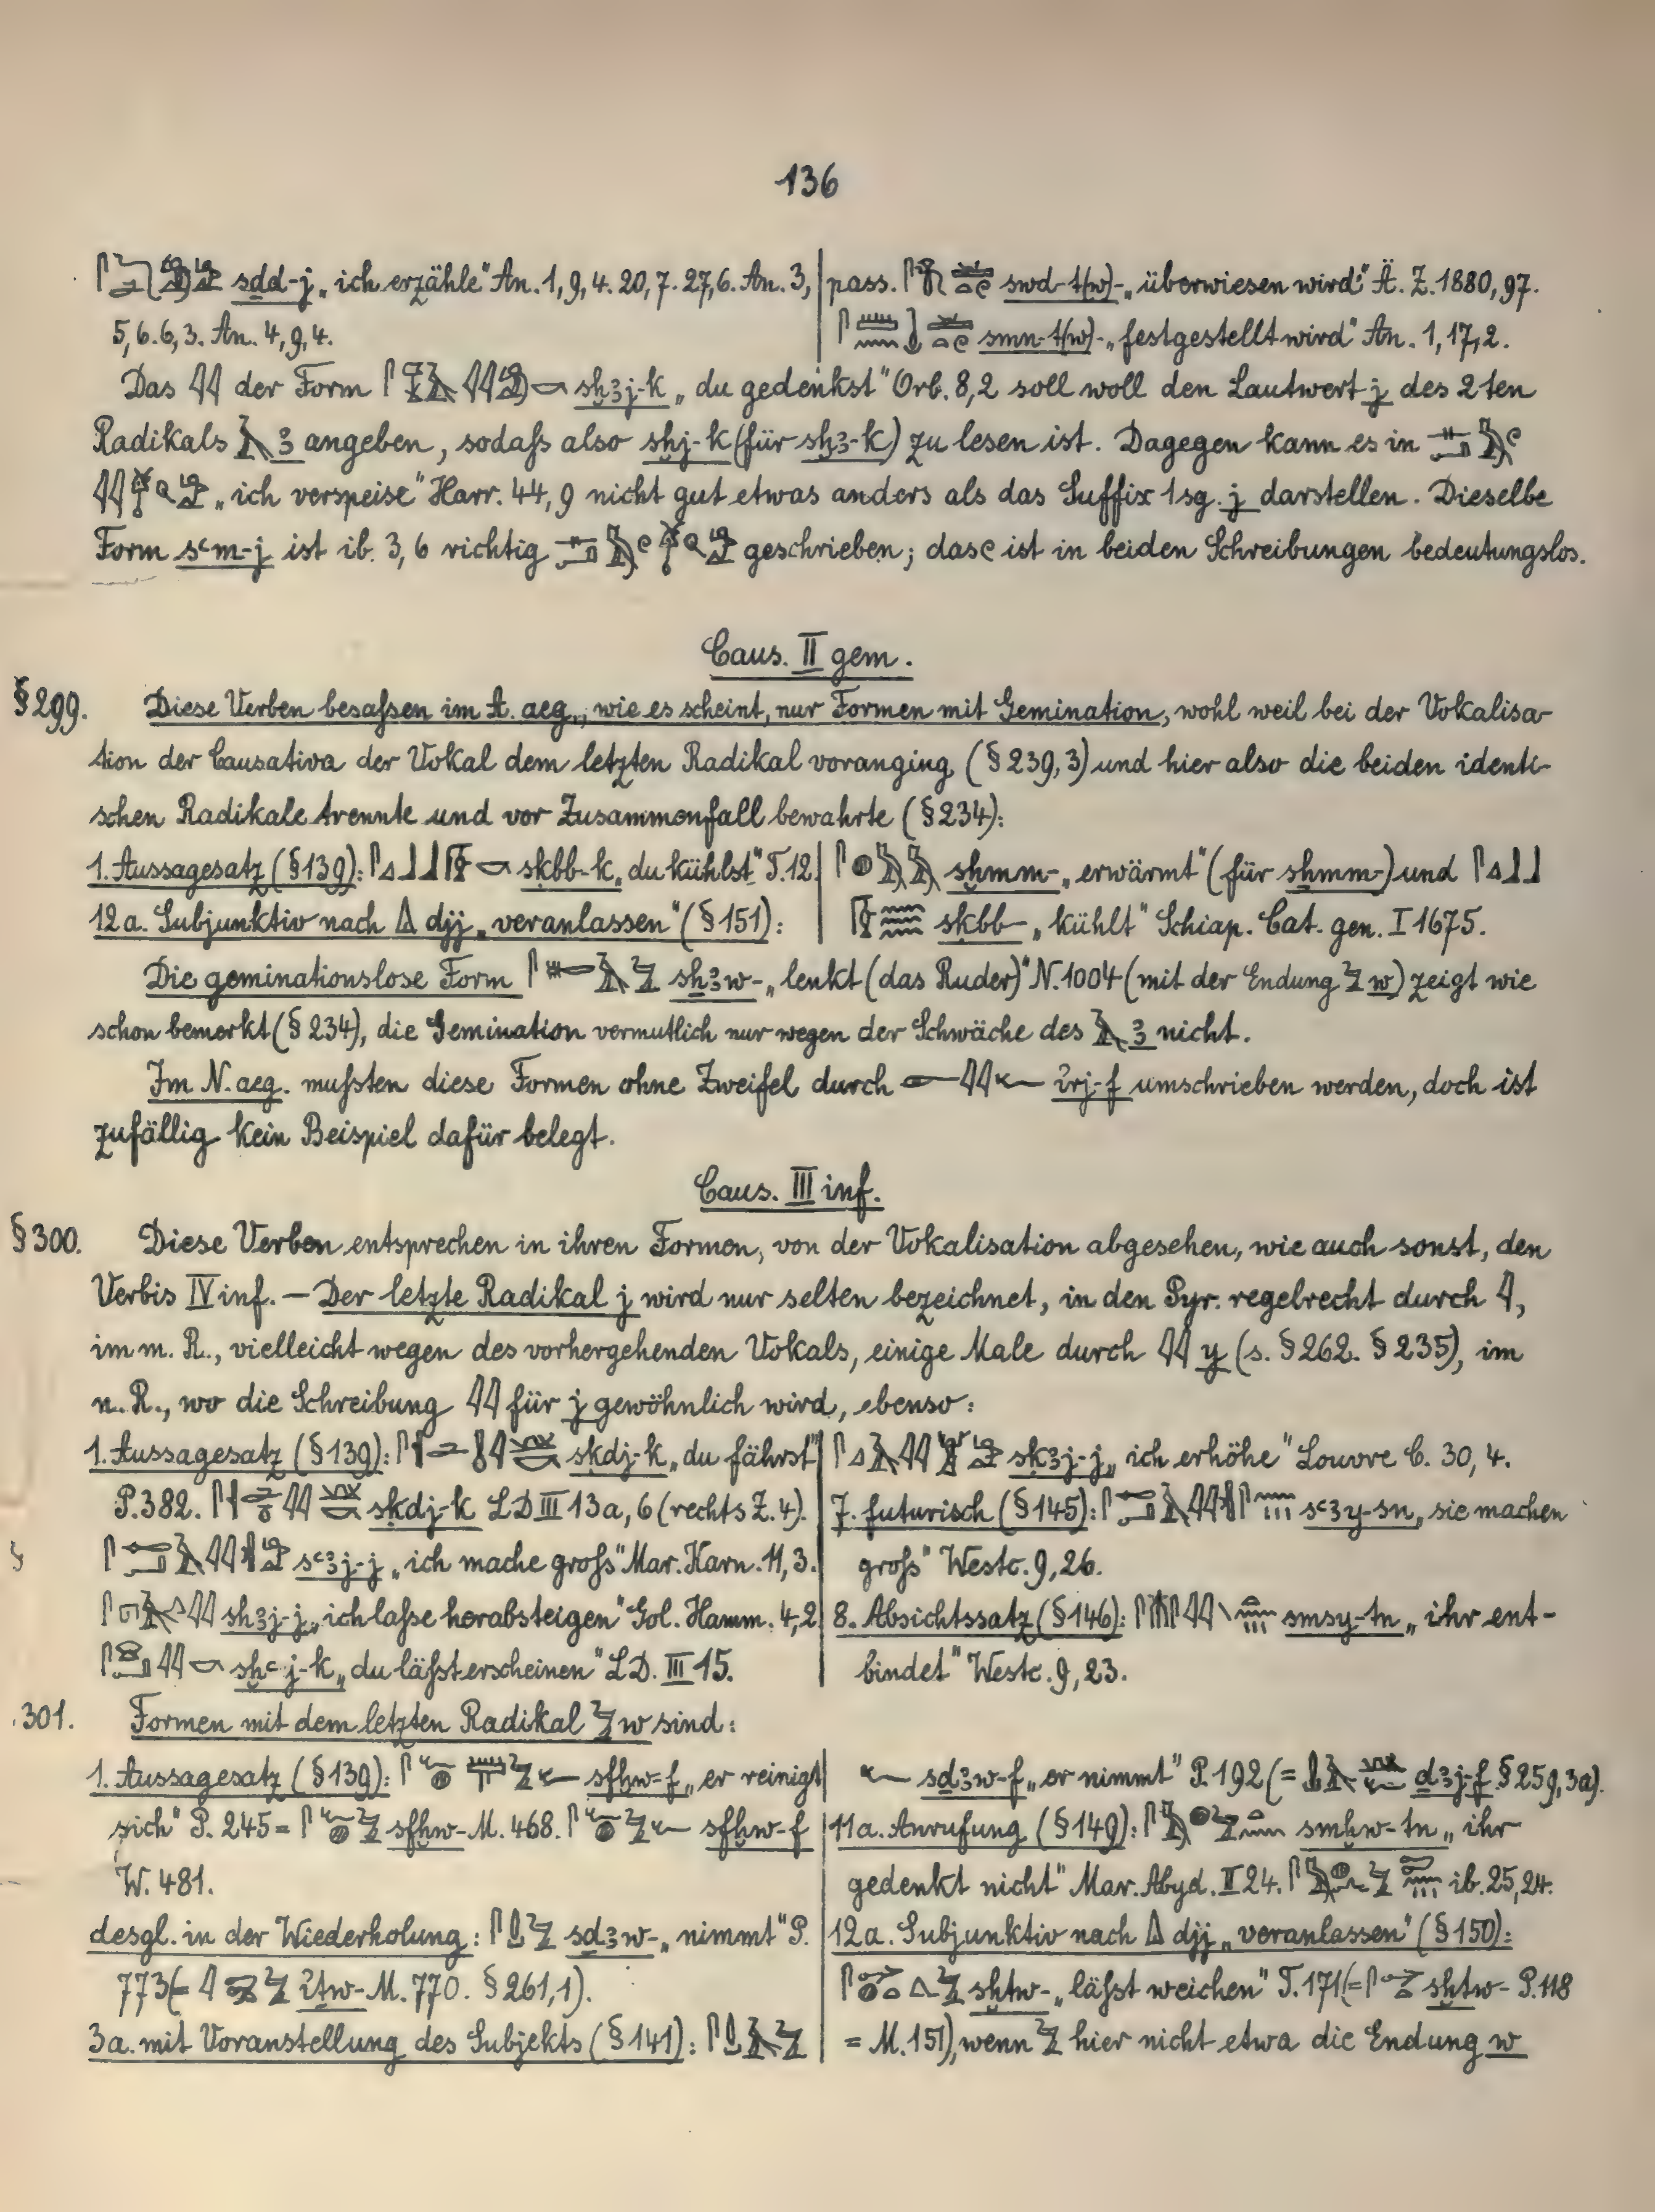 136
sḏd-j „ich erzähle“ An. 1, 9, 4. 20, 7. 27, 6. An. 3,
5, 6. 6, 3. An. 4, 9, 4.
pass. swḏ-t(w)- „überwiesen wird“ Ä. Z. 1880, 97.
smn-t(w)- „festgestellt wird“ An. 1, 17, 2.
Das 𓇋𓇋 der Form sḫꜣj-k „du gedenkst“ Orb. 8, 2 soll woll den Lautwert j des 2ten
Radikals 𓄿 ꜣ angeben, sodaſs also sḫj-k (für sḫꜣ-k) zu lesen ist. Dagegen kann es in
„ich verspeise“ Harr. 44, 9 nicht gut etwas anders als das Suffix 1sg. j darstellen. Dieselbe
Form sꜥm-j ist ib. 3, 6 richtig geschrieben; das 𓏲 ist in beiden Schreibungen bedeutungslos.
Caus. II gem.
§ 299. Diese Verben besaſsen im A. aeg., wie es scheint, nur Formen mit Gemination, wohl weil bei der Vokalisa-
tion der Causativa der Vokal dem letzten Radikal voranging (§ 239, 3) und hier also die beiden identi-
schen Radikale trennte und vor Zusammenfall bewahrte (§ 234):
1. Aussagesatz (§ 139): skbb-k „du kühlst“ T. 12
12 a. Subjunktiv nach djj „veranlassen“ (§ 151):
sḫmm- „erwärmt“ (für shmm-) und
skbb- „kühlt“ Schiap. Cat. gen. I 1675.
Die geminationslose Form sḥꜣw- „lenkt (das Ruder)“ N. 1004 (mit der Endung 𓅱 w) zeigt wie
schon bemerkt (§ 234), die Gemination vermutlich nur wegen der Schwäche des 𓄿 ꜣ nicht.
Im N. aeg. muſsten diese Formen ohne Zweifel durch 𓁹𓇋𓇋𓆑 irj-f umschrieben werden, doch ist
zufällig kein Beispiel dafür belegt.
Caus. III inf.
§ 300. Diese Verben entsprechen in ihren Formen, von der Vokalisation abgesehen, wie auch sonst, den
Verbis IV inf. — Der letzte Radikal j wird nur selten bezeichnet, in den Pyr. regelrecht durch 𓇋,
im m. R., vielleicht wegen des vorhergehenden Vokals, einige Male durch 𓇋𓇋 y (s. § 262. § 235), im
n. R., wo die Schreibung 𓇋𓇋 für j gewöhnlich wird, ebenso:
1. Aussagesatz (§ 139): skdj-k „du fährst“
P. 382. skdj-k LD III 13a, 6 (rechts Z. 4).
sꜥꜣj-j „ich mache groſs“ Mar. Karn. 11, 3.
shꜣj-j „ich laſse herabsteigen“ Gol. Hamm. 4, 2
sḫꜥj-k „du läſst erscheinen“ LD. III 15.
skꜣj-j „ich erhöhe“ Louvre C. 30, 4.
7. futurisch (§ 145): sꜥꜣy-sn „sie machen
groſs“ Westc. 9, 26.
8. Absichtssatz (§ 146): smsy-tn „ihr ent-
bindet“ Westc. 9, 23.
301. Formen mit dem letzten Radikal 𓅱 w sind:
1. Aussagesatz (§ 139): sfḫw-f „er reinigt
sich“ P. 245 = sfḫw- M. 468. sfḫw-f
W. 481.
desgl. in der Wiederholung: sdꜣw- „nimmt“ P.
773 (= iṯw- M. 770. § 261, 1).
3a. mit Voranstellung des Subjekts (§ 141):
sdꜣw-f „er nimmt“ P. 192 (= dꜣj-f § 259, 3a).
11a. Anrufung (§ 149): smḫw-tn „ihr
gedenkt nicht“ Mar. Abyd. II 24. ib. 25, 24.
12a. Subjunktiv nach djj „veranlassen“ (§ 150):
sḫtw- „läſst weichen“ T. 171 (= sḫtw- P. 118
= M. 151), wenn 𓅱 hier nicht etwa die Endung w